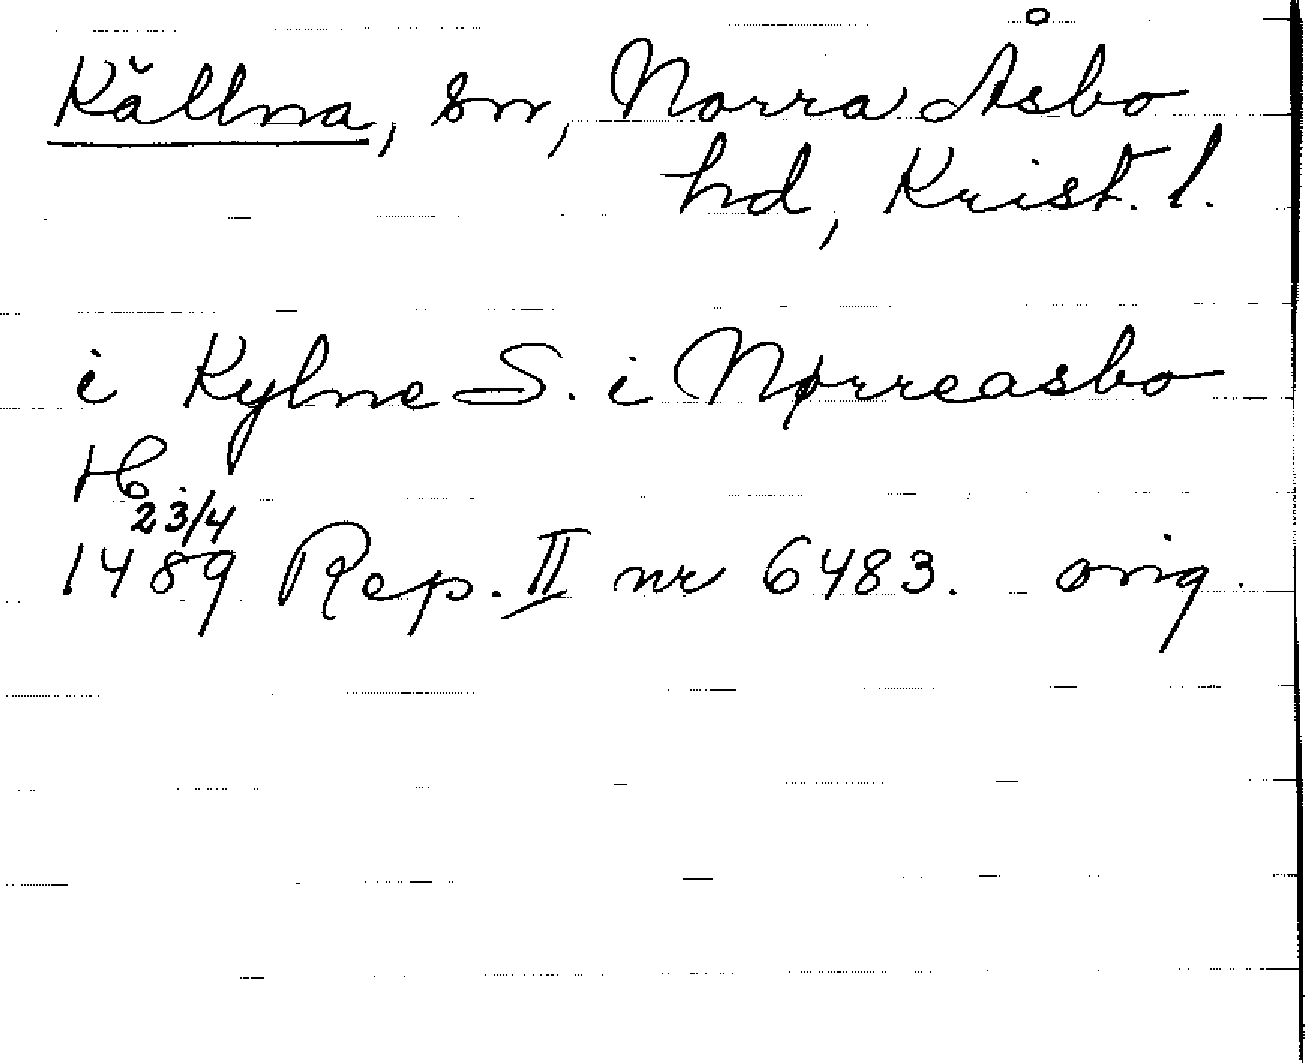 Källna, sn, Norra Åsbo
hd, Krist. l.
i Kylne S. i Nørreasbo
H.
23/4
1489 Rep. II nr 6483. orig.